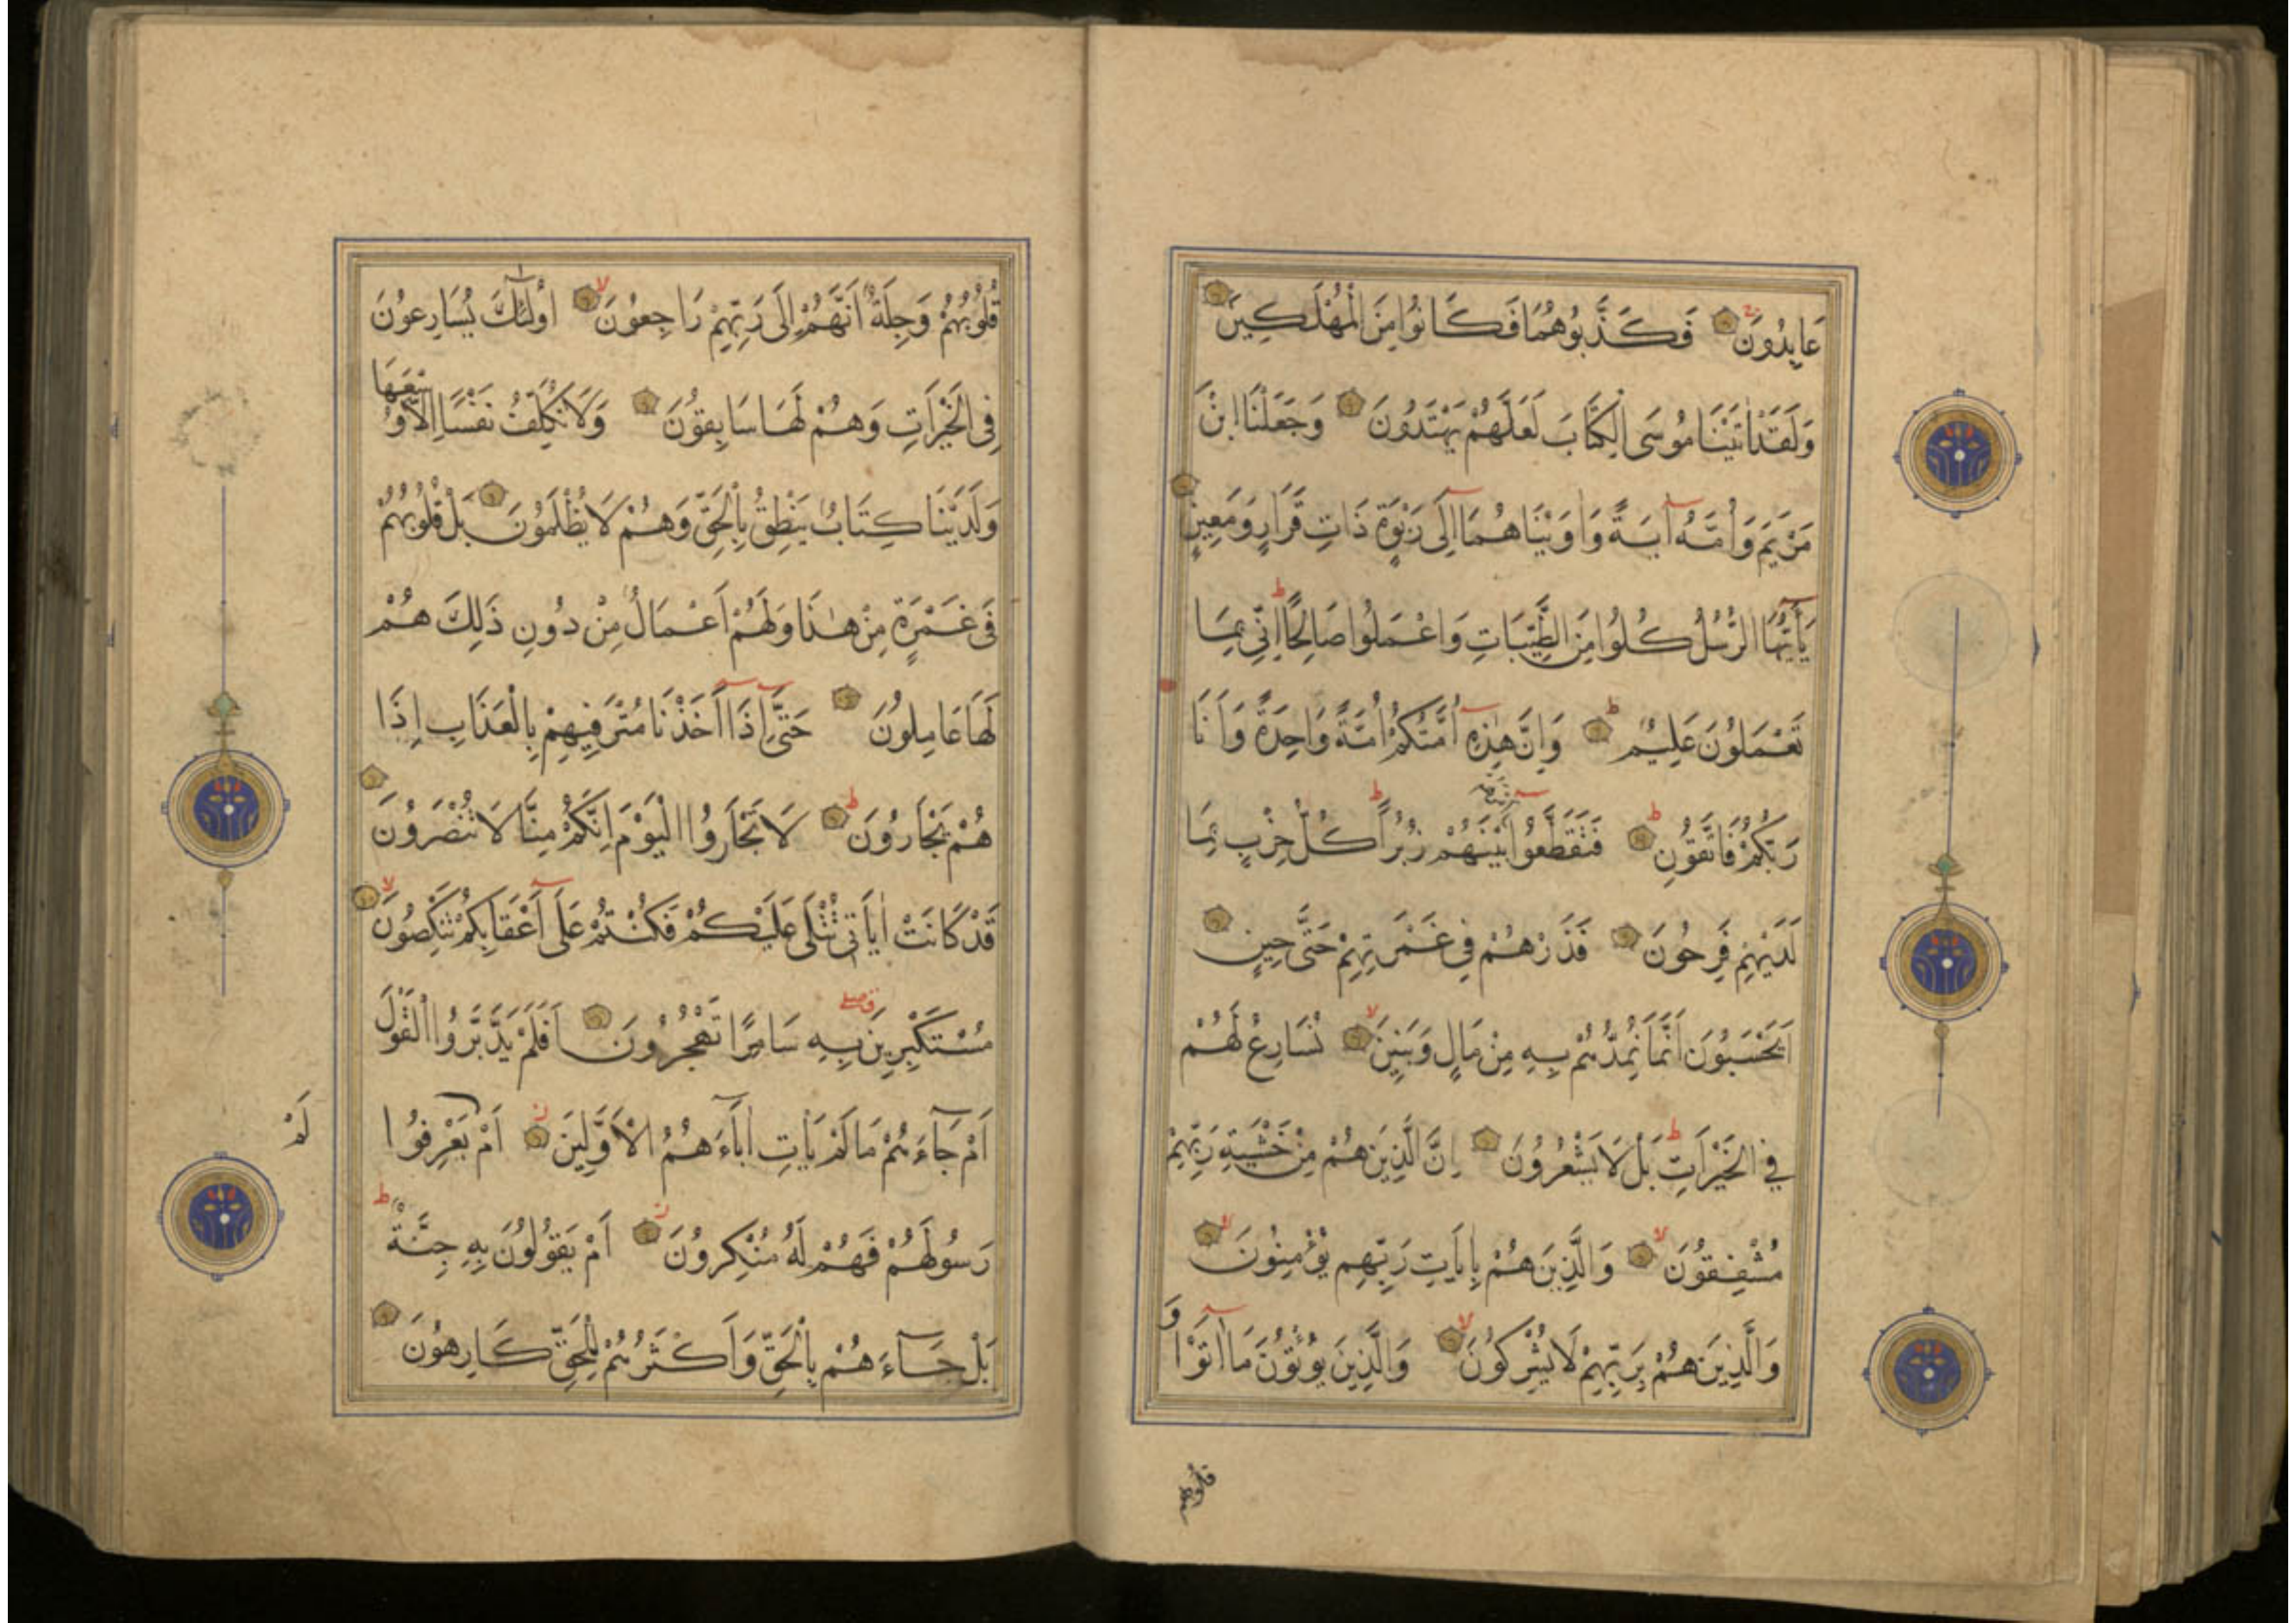 عَابِدُونَ فَكَذَّبُوهُمَا فَكَانُوا مِنَ الْمُهْلَكِينَ
وَلَقَدْ اٰتَيْنَا مُوسَى الْكِتَابَ لَعَلَّهُمْ يَهْتَدُونَ وَجَعَلْنَا ابْنَ
مَرْيَمَ وَأُمَّهُ آيَةً وَاٰوَيْنَاهُمَا إِلَى رَبْوَةٍ ذَاتِ قَرَارٍ وَمَعِينٍ
يَآأَيُّهَا الرُّسُلُ كُلُوا مِنَ الطَّيِّبَاتِ وَاعْمَلُوا صَالِحًا إِنِّي بِمَا
تَعْمَلُونَ عَلِيمٌ وَإِنَّ هٰذِهِ أُمَّتُكُمْ أُمَّةً وَاحِدَةً وَأَنَا
رَبُّكُمْ فَاتَّقُونِ فَتَقَطَّعُوا أَمْرَهُمْ بَيْنَهُمْ زُبُرًا كُلُّ حِزْبٍ بِمَا
لَدَيْهِمْ فَرِحُونَ فَذَرْهُمْ فِي غَمْرَتِهِمْ حَتَّى حِينٍ
اَيَحْسَبُونَ اَنَّمَا نُمِدُّهُمْ بِهِ مِنْ مَالٍ وَبَنِينَ نُسَارِعُ لَهُمْ
فِي الْخَيْرَاتِ بَلْ لَا يَشْعُرُونَ اِنَّ الَّذِينَ هُمْ مِنْ خَشْيَةِ رَبِّهِمْ
مُشْفِقُونَ وَالَّذِينَ هُمْ بِاٰيَاتِ رَبِّهِمْ يُؤْمِنُونَ
وَالَّذِينَ هُمْ بِرَبِّهِمْ لَا يُشْرِكُونَ وَالَّذِينَ يُؤْتُونَ مَا اٰتَوْا وَ
قلوبهم
قُلُوبُهُمْ وَجِلَةٌ اَنَّهُمْ اِلَى رَبِّهِمْ رَاجِعُونَ اُولٰئِكَ يُسَارِعُونَ
فِى الْخَيْرَاتِ وَهُمْ لَهَا سَابِقُونَ وَلَا نُكَلِّفُ نَفْسًا اِلَّا وُسْعَهَا
وَلَدَيْنَا كِتَابٌ يَنْطِقُ بِالْحَقِّ وَهُمْ لَا يُظْلَمُونَ بَلْ قُلُوبُهُمْ
فِى غَمْرَةٍ مِنْ هٰذَا وَلَهُمْ اَعْمَالٌ مِنْ دُونِ ذَلِكَ هُمْ
لَهَا عَامِلُونَ حَتَّى اِذَا اَخَذْنَا مُتْرَفِيهِمْ بِالْعَذَابِ اِذَا
هُمْ يَجْأَرُونَ لَا تَجْأَرُوا الْيَوْمَ اِنَّكُمْ مِنَّا لَا تُنْصَرُونَ
قَدْ كَانَتْ اٰيَاتِى تُتْلَى عَلَيْكُمْ فَكُنْتُمْ عَلَى اَعْقَابِكُمْ تَنْكِصُونَ
مُسْتَكْبِرِينَ بِهِ سَامِرًا تَهْجُرُونَ اَفَلَمْ يَدَّبَّرُوا الْقَوْلَ
اَمْ جَآءَهُمْ مَا لَمْ يَأْتِ اٰبَآءَهُمُ الْاَوَّلِينَ اَمْ يَعْرِفُوا
لَمْ
رَسُولَهُمْ فَهُمْ لَهُ مُنْكِرُونَ اَمْ يَقُولُونَ بِهِ جِنَّةٌ
بَلْ جَآءَهُمْ بِالْحَقِّ وَاَكْثَرُهُمْ لِلْحَقِّ كَارِهُونَ